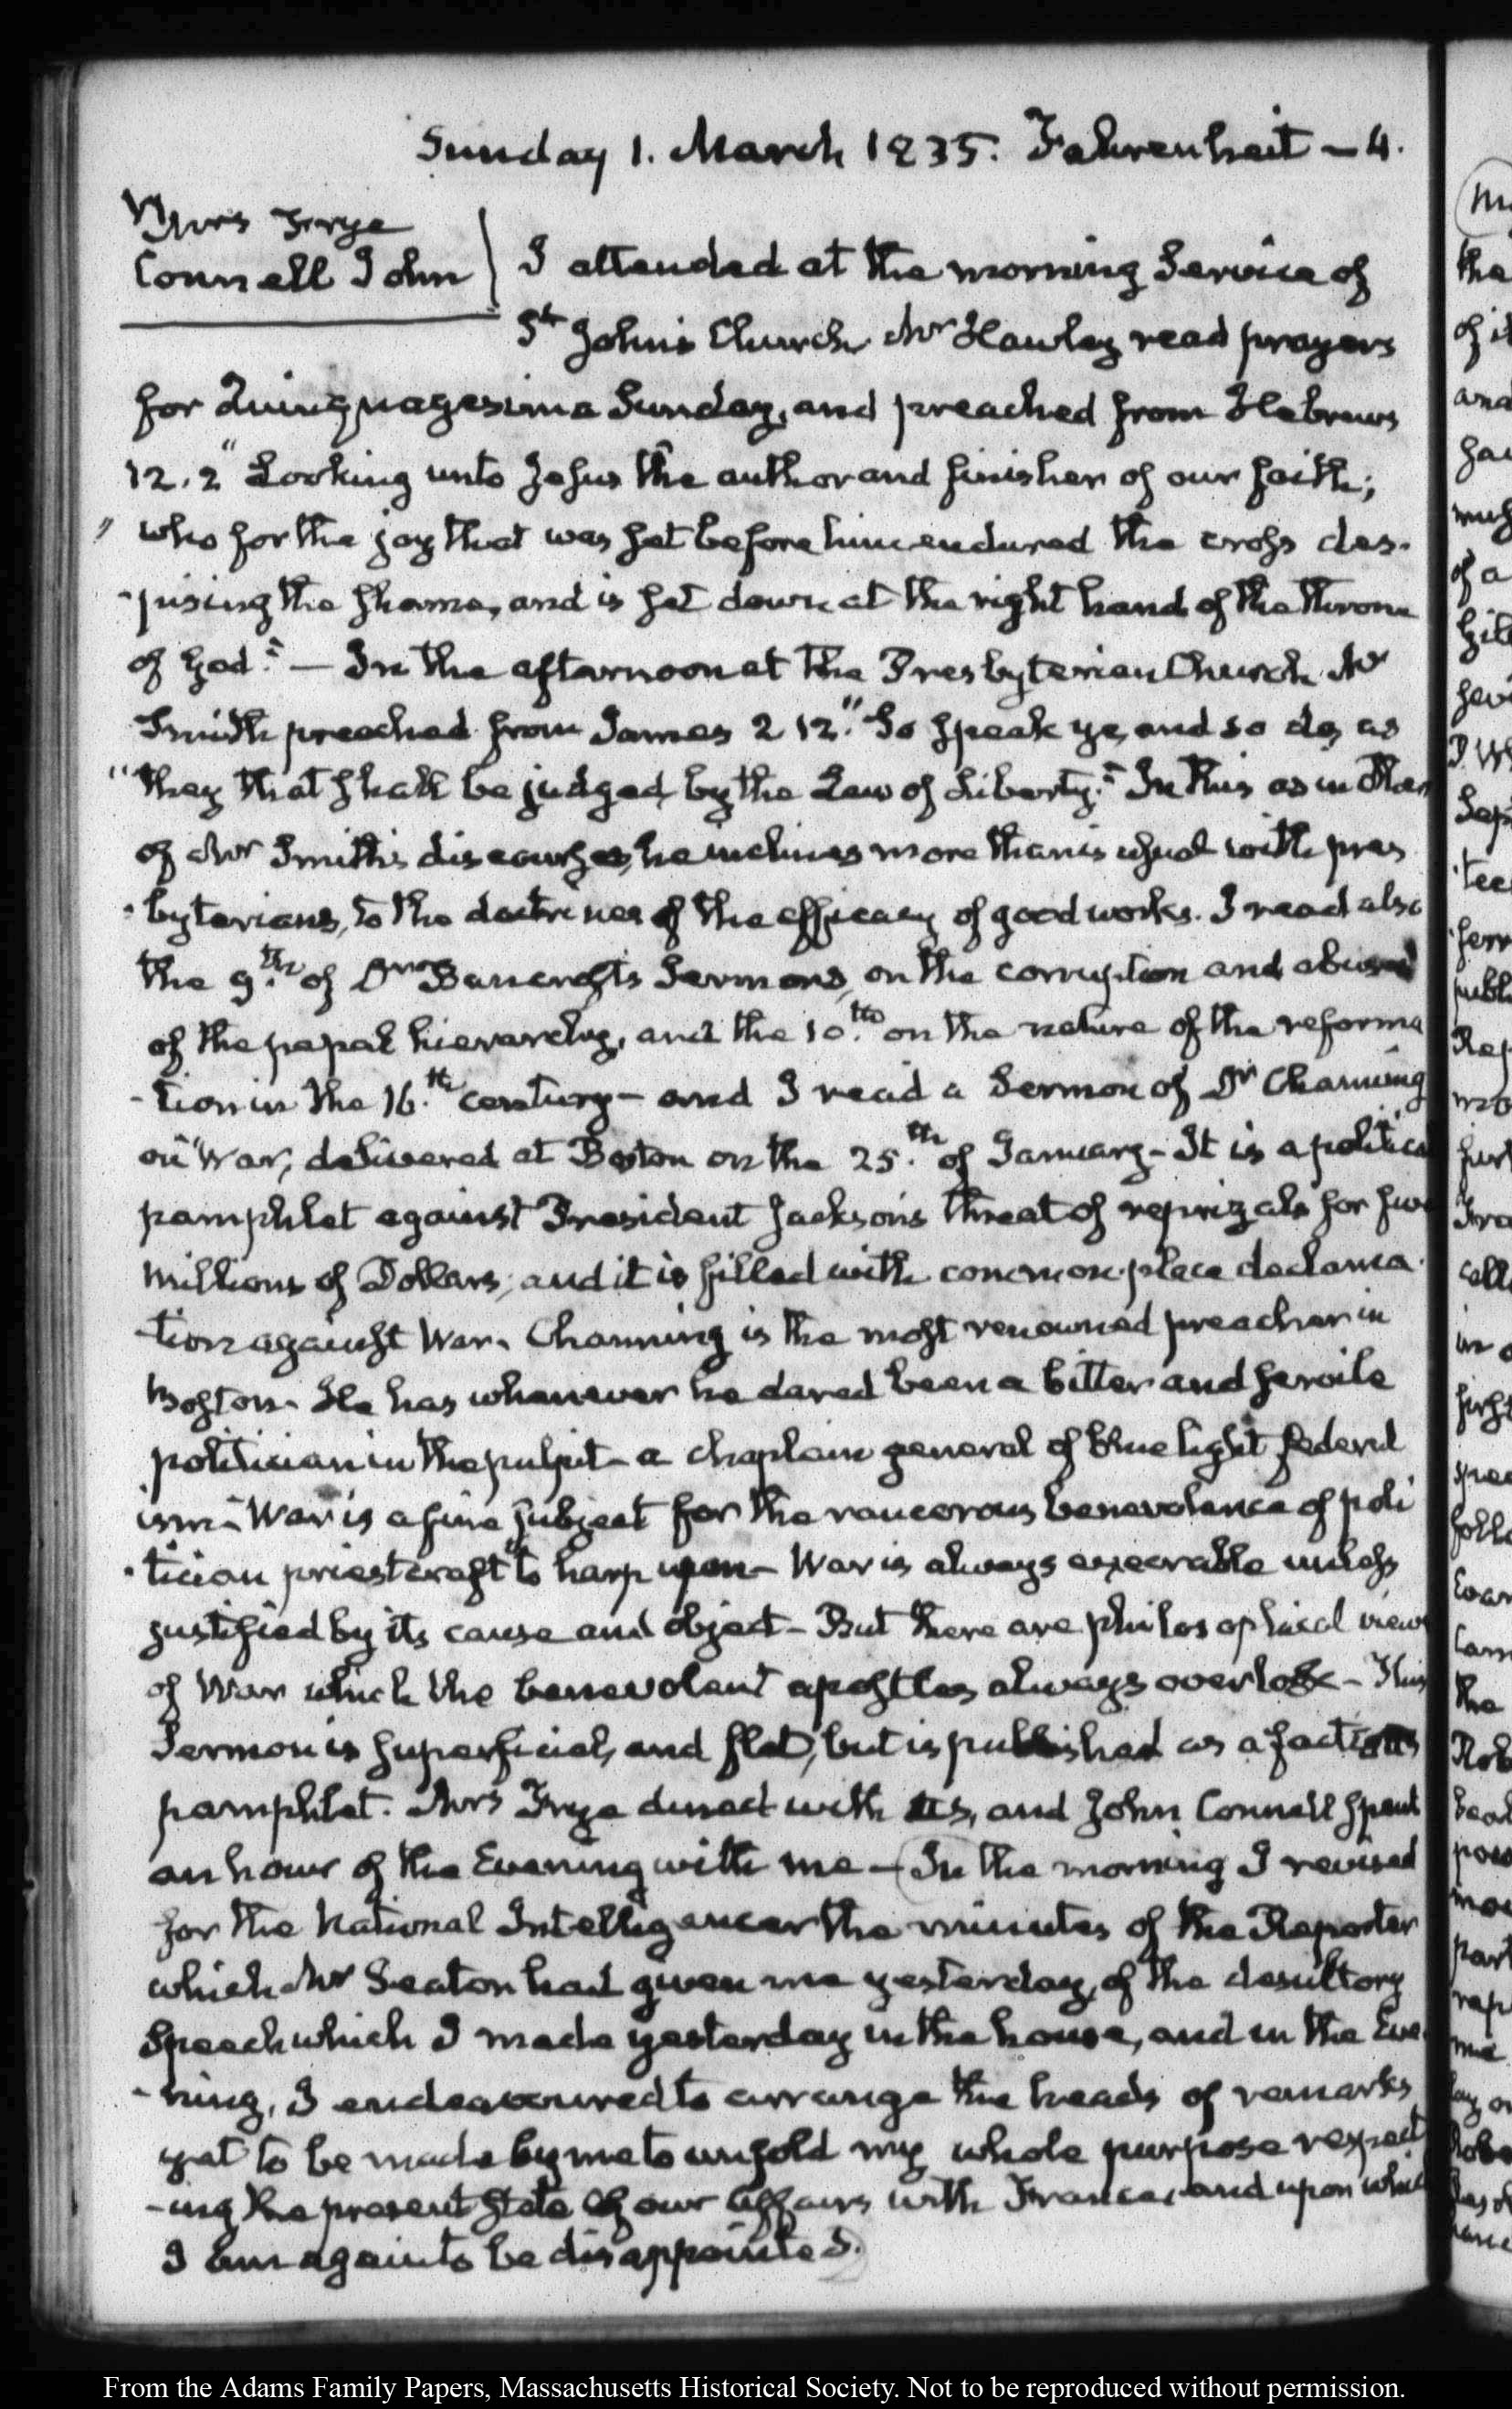 Sunday 1. March 1835. Fahrenheit – 4.
Mrs Frye
Connell John
I attended at the morning Service of
St John's Church Mr Hawley read prayers
for Quinquagesima Sunday, and preached from Hebrews
12. 2 "Looking unto Jesus the author and finisher of our faith;
" who for the joy that was set before him endured the cross des-
-pising the shame, and is set down at the right hand of the throne
of God." — In the afternoon at the Presbyterian Church Mr
Smith preached from James 2 12. "So speak ye, and so do, as
"they that shall be judged by the Law of Liberty." In this as in other
of Mr Smith's discourses, he inclines more than is usual with pres
-byterians, to the doctrines of the efficacy of good works. I read also
the 9.th of Dr Bancroft's Sermons, on the corruption and abuses
of the papal hierarchy, and the 10.th on the nature of the reforma
-tion in the 16.th century – and I read a Sermon of Dr Channing
on War, delivered at Boston on the 25.th of January – It is a political
pamphlet against President Jackson's threat of reprizals for five
millions of Dollars, and it is filled with common-place declama-
-tion against War. Channing is the most renowned preacher in
Boston. He has whenever he dared been a bitter and servile
politician in the pulpit – a chaplain general of blue light federal
ism – War is a fine subject for the rancorous benevolence of poli
-tician priestcraft to harp upon – War is always execrable unless
justified by its cause and object – But there are philosophical views
of War which the benevolent apostles always overlook – This
Sermon is superficial, and flat, but is published as a factious
pamphlet. Mrs Frye dined with us, and John Connell spent
an hour of the Evening with me – In the morning I revised
for the National Intelligencer the minutes of the Reporter
which Mr Seaton had given me yesterday, of the desultory
Speech which I made yesterday in the house, and in the Eve
-ning, I endeavoured to arrange the heads of remarks
yet to be made by me to unfold my whole purpose respect
-ing the present state of our affairs with France, and upon which
I am again to be disappointed.
From the Adams Family Papers, Massachusetts Historical Society. Not to be reproduced without permission.